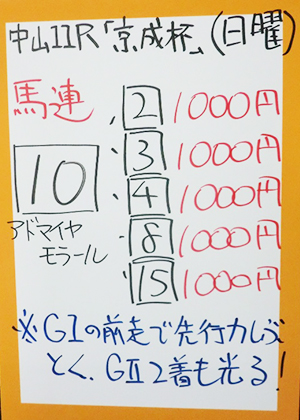 中山11R「京成杯」(日曜)
馬連
10
アドマイヤ
モラール
2 1000円
3 1000円
4 1000円
8 1000円
15 1000円
※GIの前走で先行力しぶ
とく、GII2着も光る!